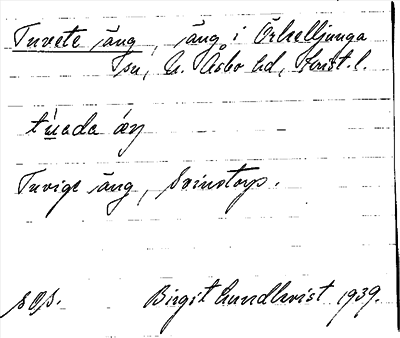 Tuvete äng, äng i Örkelljunga
sn, N. Åsbo hd, Krist. l.
Tuvige äng, Svinstorp.
sgs. Birgit Lundkvist 1939.